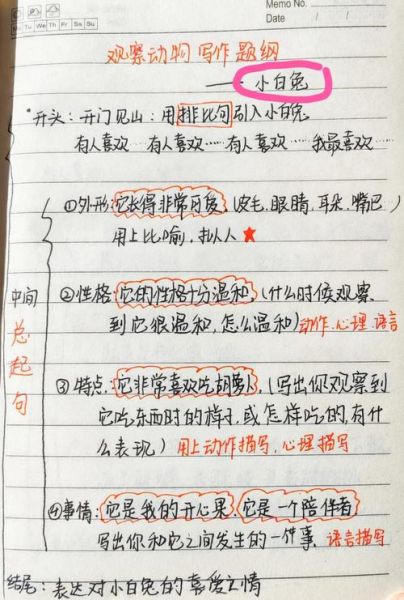 Memo No.
Mo Tu We Th Fr Sa Su
Date / /
观察动物写作题纲
——小白兔
*开头:开门见山:用排比句引入小白兔
有人喜欢……有人喜欢……有人喜欢……我最喜欢……
①外形:它长得非常可爱,(皮毛、眼睛、耳朵、嘴巴)
用上比喻,拟人★
中间
总起句
②性格:它的性格十分温和,(什么时候观察
到它很温和,怎么温和)动作、心理、语言
③特点:它非常喜欢吃胡萝卜,(写出你观察到
它吃东西时的样子,或怎样吃的,有什
么表现)用上动作描写、心理描写
④事情:它是我的开心果,它是一个陪伴者
写出你和它之间发生的一件事 语言描写
结尾:表达对小白兔的喜爱之情